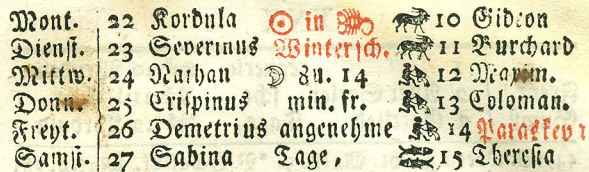 Mont. 22 Kordula ☉ in ♏ 10 Gideon
Dienst. 23 Severinus Wintersch. 11 Burchard
Mittw. 24 Nathan ☽ 8u. 14 12 Maxim.
Donn. 25 Crispinus min. fr. 13 Coloman.
Freyt. 26 Demetrius angenehme 14
Samst. 27 Sabina Tage, 15 Theresia